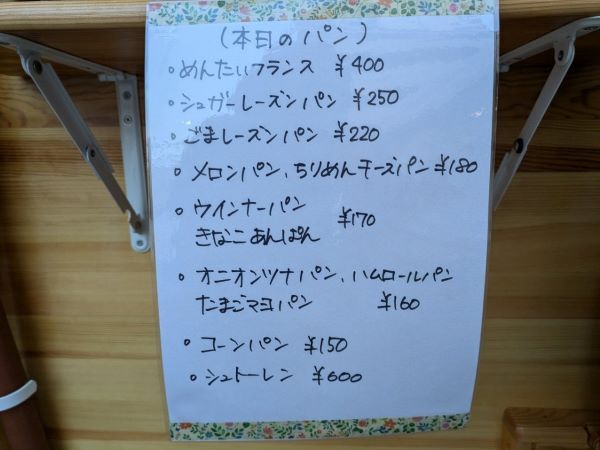 (本日のパン)
・めんたいフランス ¥400
・シュガーレーズンパン ¥250
・ごまレーズンパン ¥220
・メロンパン、ちりめんチーズパン ¥180
・ウインナーパン
きなこあんぱん ¥170
・オニオンツナパン、ハムロールパン
たまごマヨパン ¥160
・コーンパン ¥150
・シュトーレン ¥600